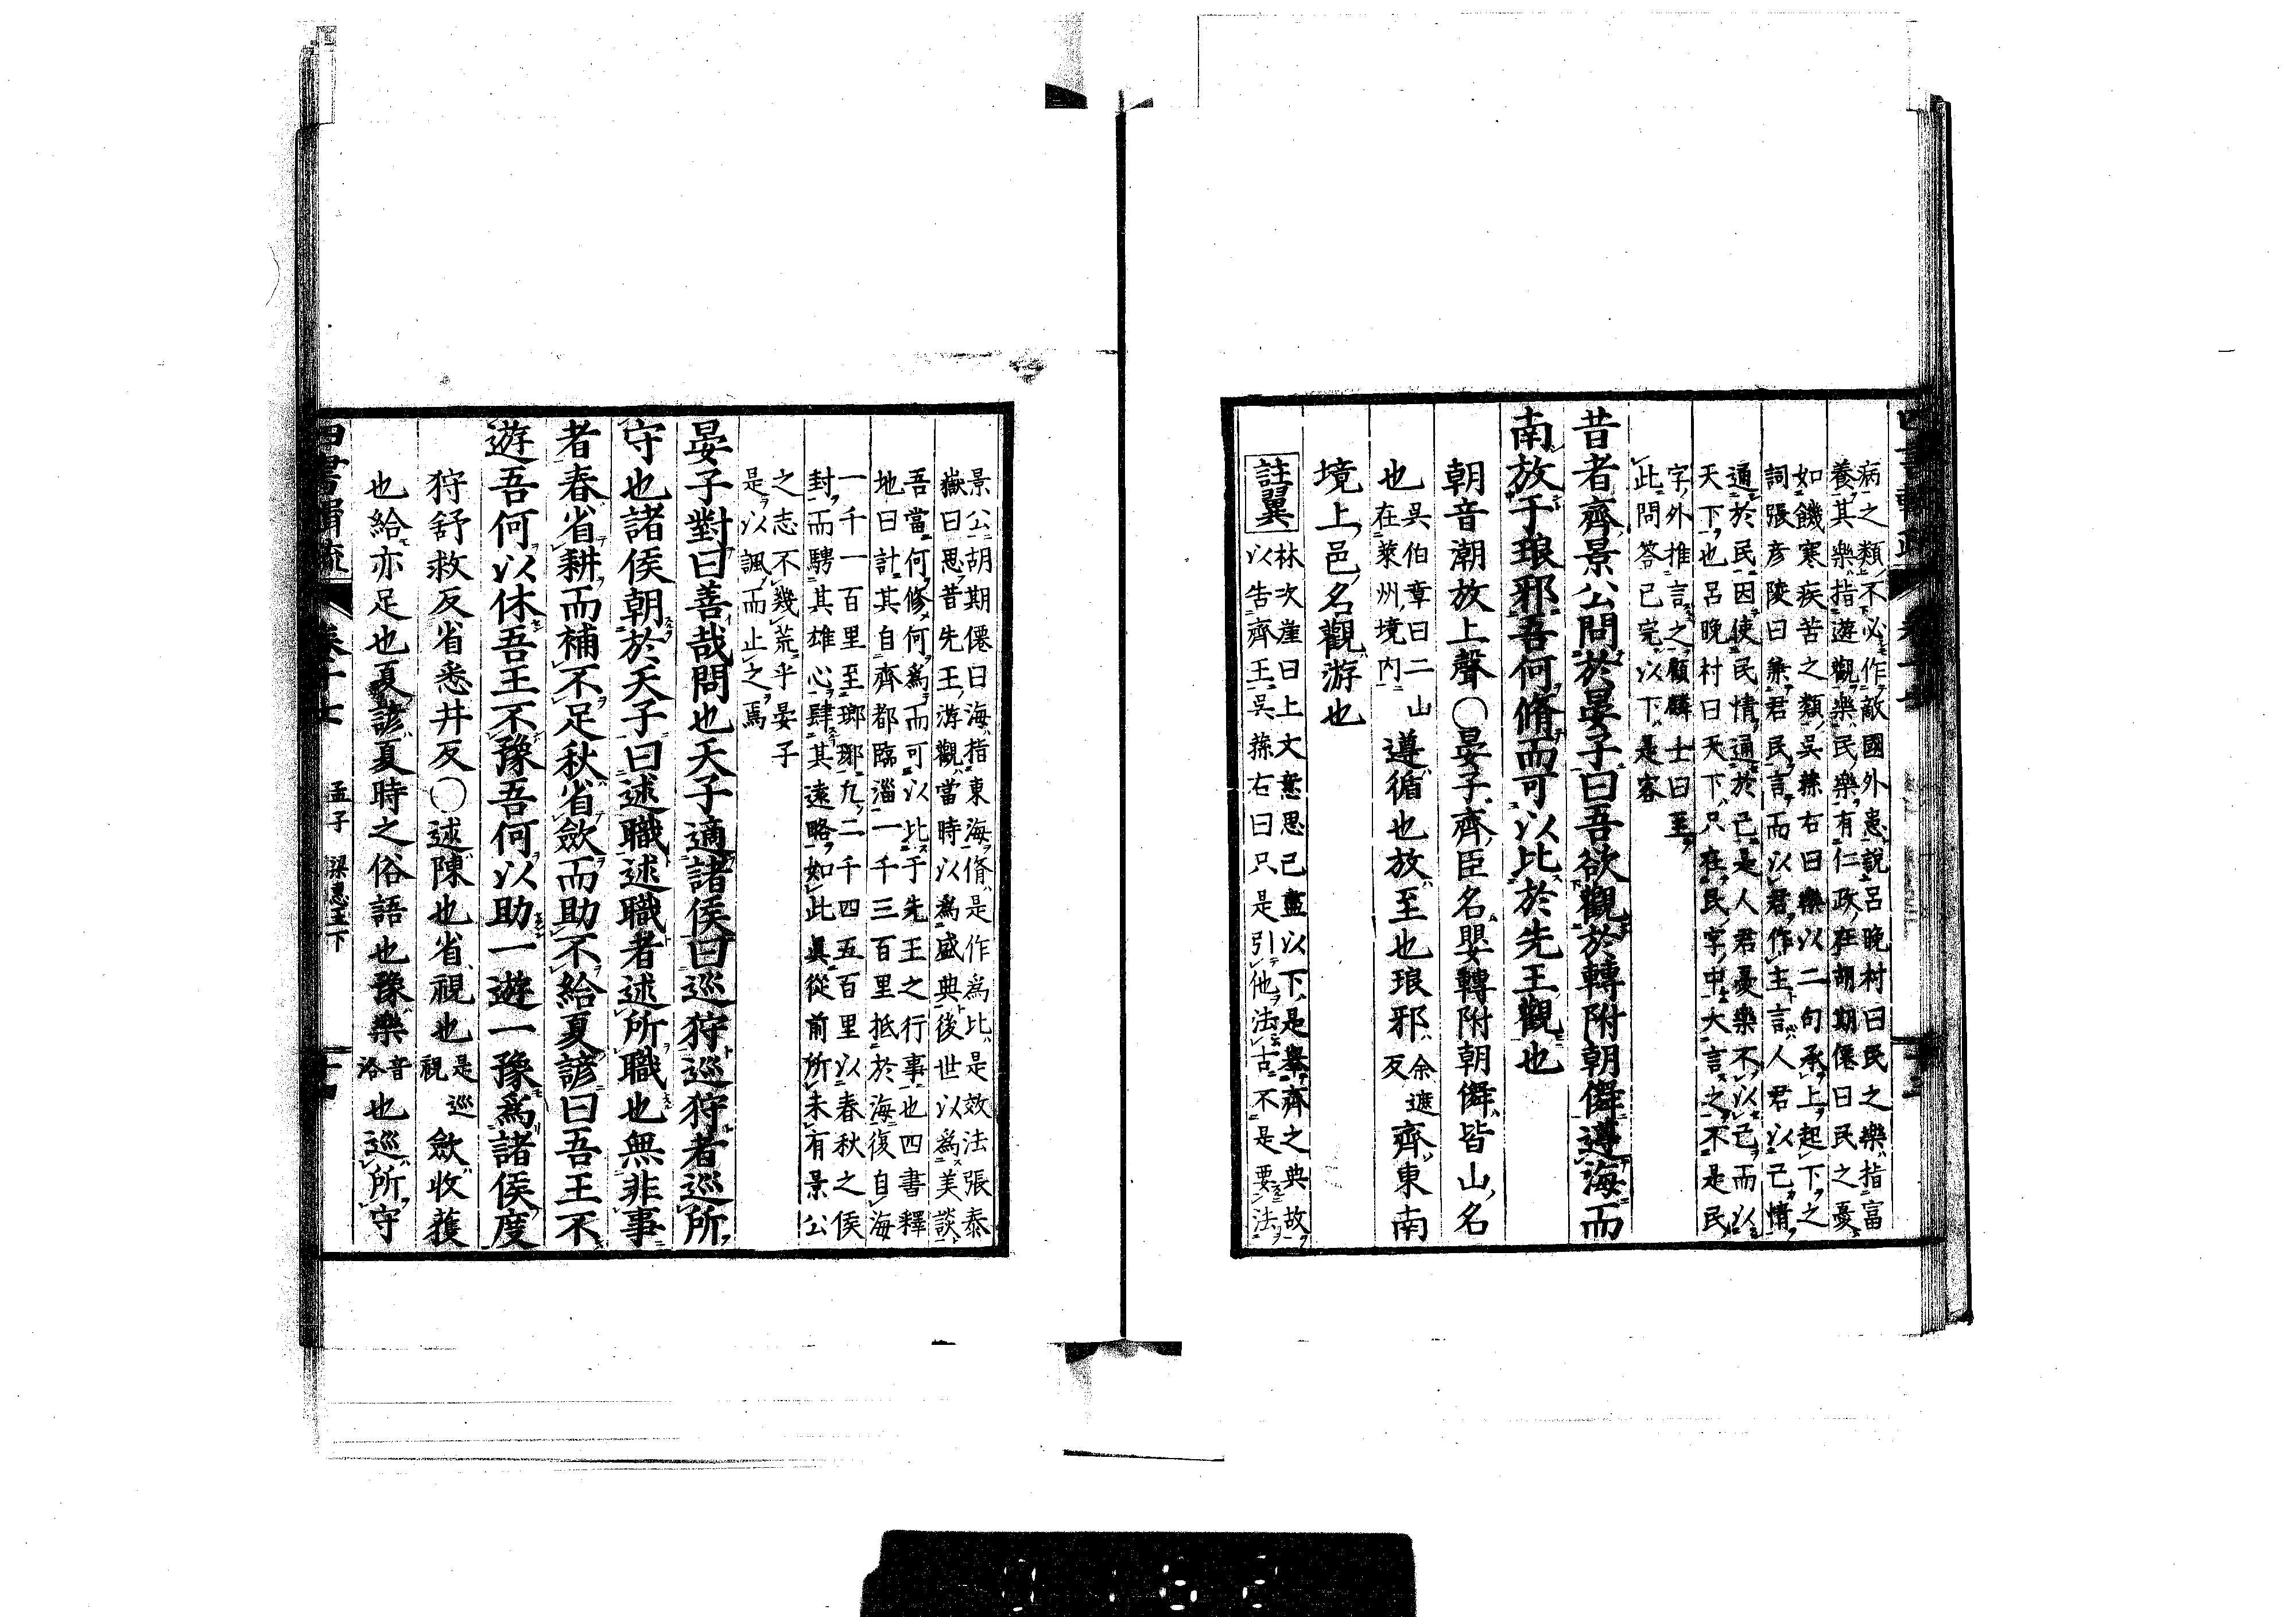 病之類不必作敵國外患說呂晚村曰民之樂指富
養其樂指遊觀樂民樂有仁政在胡期僊曰民之憂
如饑寒疾苦之類吳蓀右曰樂以二句承上起下之
詞張彥陵曰樂君民言而以君作主言人君以己情
通於民因使民情通於己是人君憂樂不以己而以
天下也呂晚村曰天下只在民字中大言之不是民
字外推言之顧麟士曰至
此問答已完以下是客
昔者齊景公問於晏子曰吾欲觀於轉附朝儛遵海而
南放于琅邪吾何脩而可以比於先王觀也
朝音潮放上聲○晏子齊臣名嬰轉附朝儛皆山名
也吳伯章曰二山
在萊州境內遵循也放至也琅邪余遮
反齊東南
境上邑名觀游也
註翼林次崖曰上文意思已盡以下是舉齊之典故
以告齊王吳蓀右曰只是引他法古不是要法
景公胡期僊曰海指東海脩是作為比是效法張泰
嶽曰思昔先王游觀當時以為盛典後世以為美談
吾當何修何為而可以比于先王之行事也四書釋
地曰計其自齊都臨淄一千三百里抵於海復自海
一千一百里至瑯琊九二千四五百里以春秋之侯
封而騁其雄心肆其遠略如此真從前所未有景公
之志不幾荒乎晏子
是以諷而止之焉
晏子對曰善哉問也天子適諸侯曰巡狩巡狩者巡所
守也諸侯朝於天子曰述職述職者述所職也無非事
者春省耕而補不足秋省斂而助不給夏諺曰吾王不
遊吾何以休吾王不豫吾何以助一遊一豫為諸侯度
狩舒救反省悉井反○述陳也省視也是巡
視斂收穫
也給亦足也夏諺夏時之俗語也豫樂音
洛也巡所守
四書 卷十七 孟子 梁惠王下